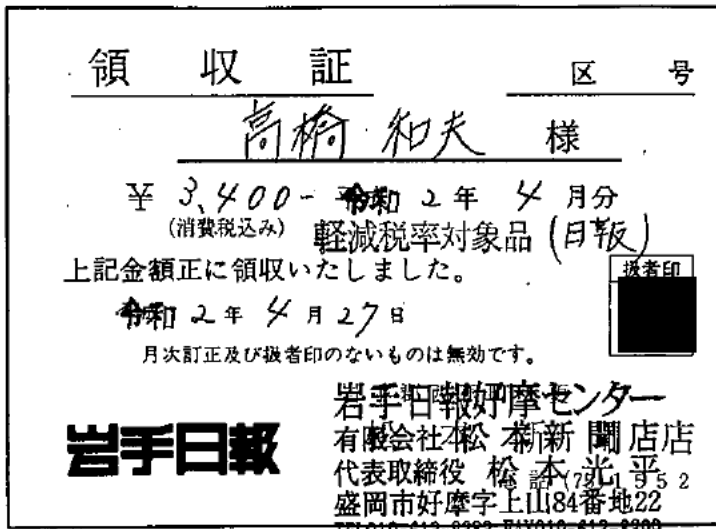 領収証 区 号
高橋 和夫 様
¥ 3,400- 令和 2年 4月分
(消費税込み) 軽減税率対象品(日報)
上記金額正に領収いたしました。
扱者印
令和 2年 4月 27日
月次訂正及び扱者印のないものは無効です。
岩手日報
岩手日報好摩センター
有限会社 松本新聞店
代表取締役 松本光平
盛岡市好摩字上山84番地22